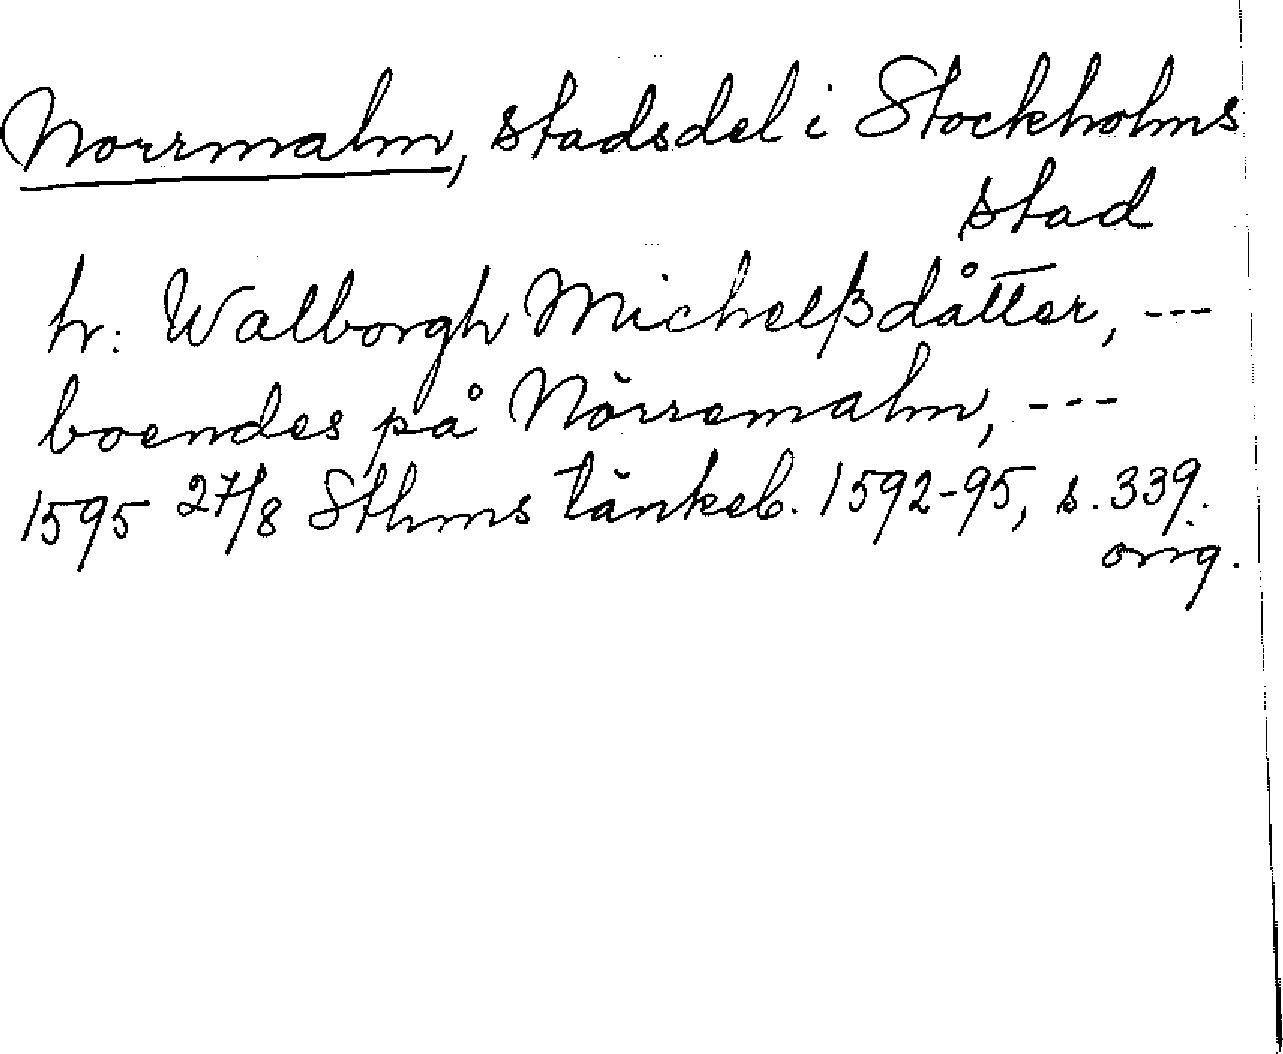 Norrmalm, stadsdel i Stockholms
stad
hr: Walborgh Michelßdåtter, ---
boendes på Nörremalm, ---
1595 27/8 Sthms tänkeb. 1592-95, s. 339.
orig.